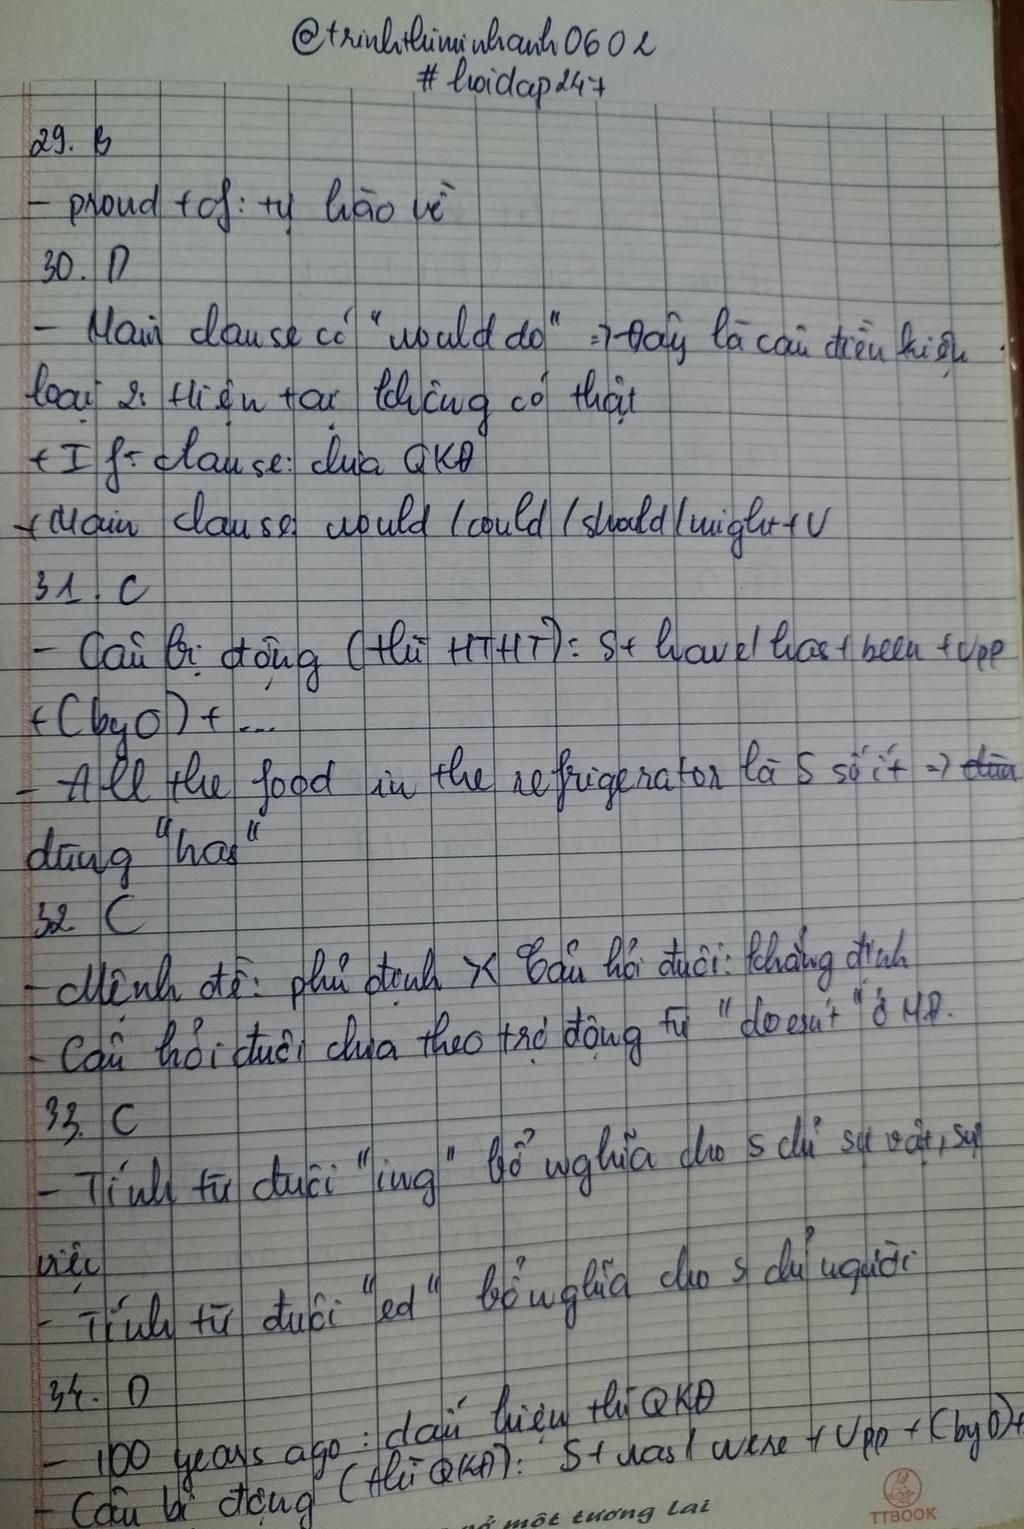 @trinhthiminhanh0602
#hoidap247
29. B
- proud + of: tự hào về
30. D
- Main clause có "would do" => Đây là câu điều kiện
loại 2: Hiện tại không có thật
+ If - clause: chia QKĐ
+ Main clause: would / could / should / might + V
31. C
- Câu bị động (thì HTHT): S + have / has + been + Vpp
+ (by O) + ...
- All the food in the refrigerator là S số ít =>
dùng "has"
32 C
- Mệnh đề: phủ định X Câu hỏi đuôi: khẳng định
- Câu hỏi đuôi chia theo trợ động từ "doesn't" ở MĐ.
33. C
- Tính từ đuôi "ing" bổ nghĩa cho S chỉ sự vật, sự
việc
- Tính từ đuôi "ed" bổ nghĩa cho S chỉ người
34. D
- 100 years ago: dấu hiệu thì QKĐ
- Câu bị động (thì QKĐ): S + was / were + Vpp + (by O) +
một tương lai
TTBOOK